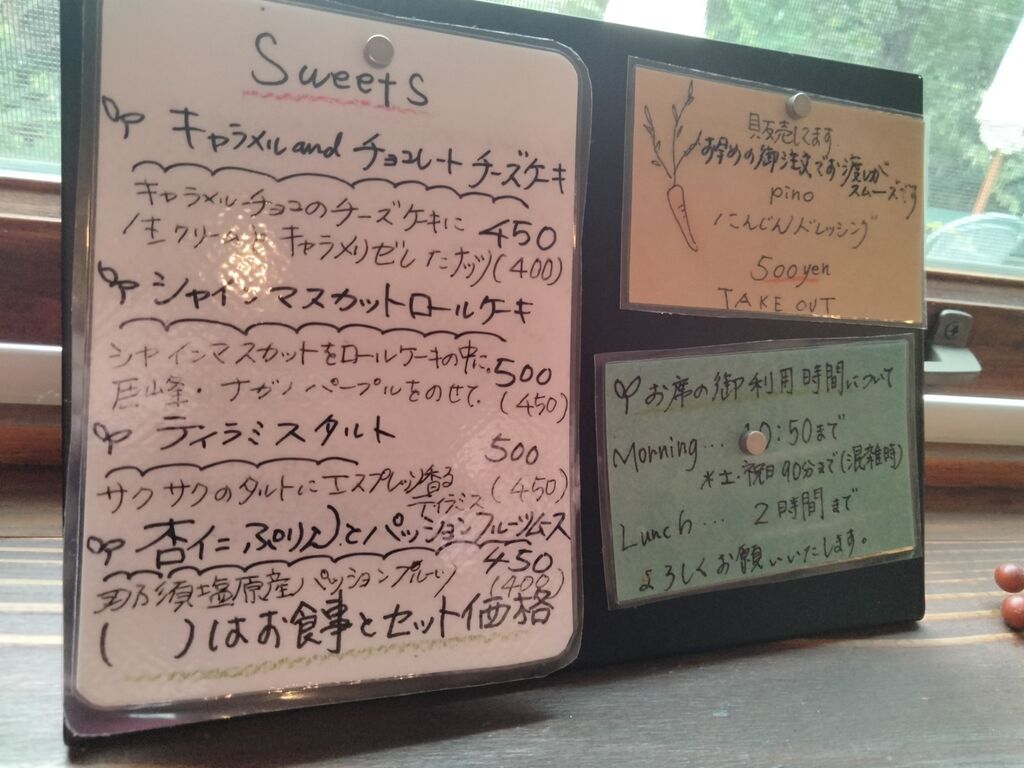 Sweets
キャラメルand チョコレート チーズケキ
キャラメルチョコのチーズケキに
生クリームと キャラメリゼしたナッツ
450
(400)
シャインマスカットロールケーキ
シャインマスカットをロールケーキの中に。
巨峰・ナガノパープルをのせて
500
(450)
ティラミスタルト
500
サクサクのタルトにエスプレッソ香る
ティラミス
(450)
杏仁ぷりんとパッションフルーツムース
450
那須塩原産パッションフルーツ
(400)
( )はお食事とセット価格
販売してます
お早めの御注文でお渡しが
スムーズです
pino
にんじんドレッシング
500yen
TAKE OUT
お席の御利用時間について
Morning... 10:50まで
土・祝日90分まで(混雑時)
Lunch... 2時間まで
よろしくお願いいたします。